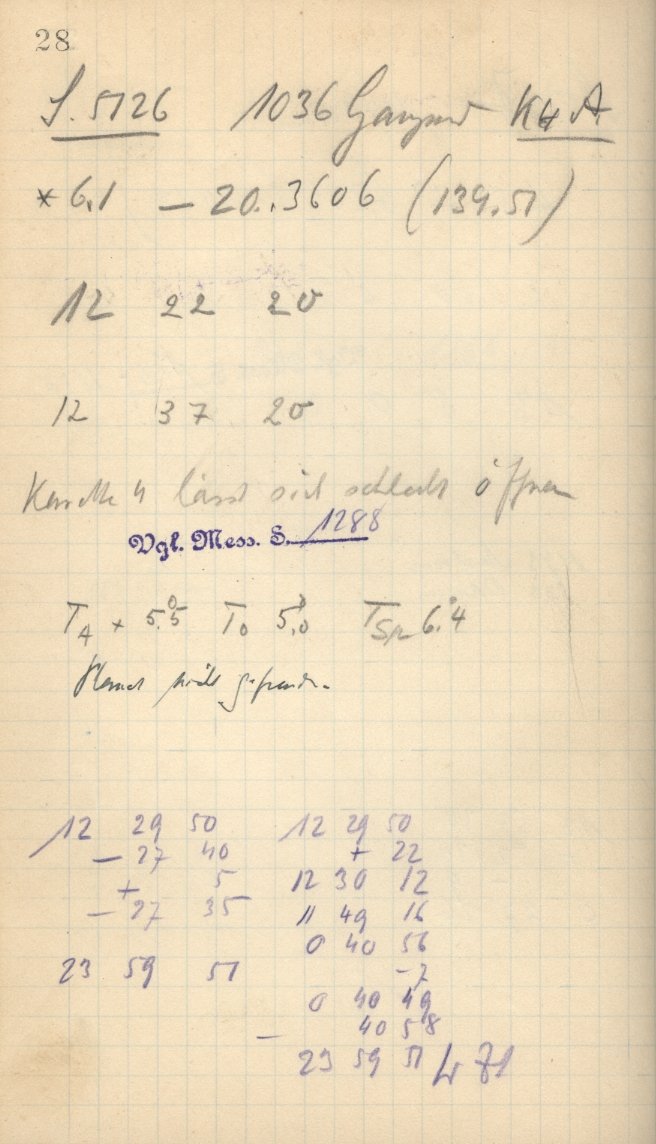 28
S. 5126 1036 Ganymed K4 A
*6.1 – 20..3606 (139.51)
12 22 20
12 37 20
Kassette 4 lässt sich schlecht öffnen
Vgl. Mess. S. 1288
T_A + 5.°5 T_0 5.°0 T_Sp 6.°4
Planet nicht gefunden.
12 29 50
– 27 40
+ 5
– 27 35
23 59 51
12 29 50
+ 22
12 30 12
11 49 16
0 40 56
–7
0 40 49
– 40 58
23 59 51